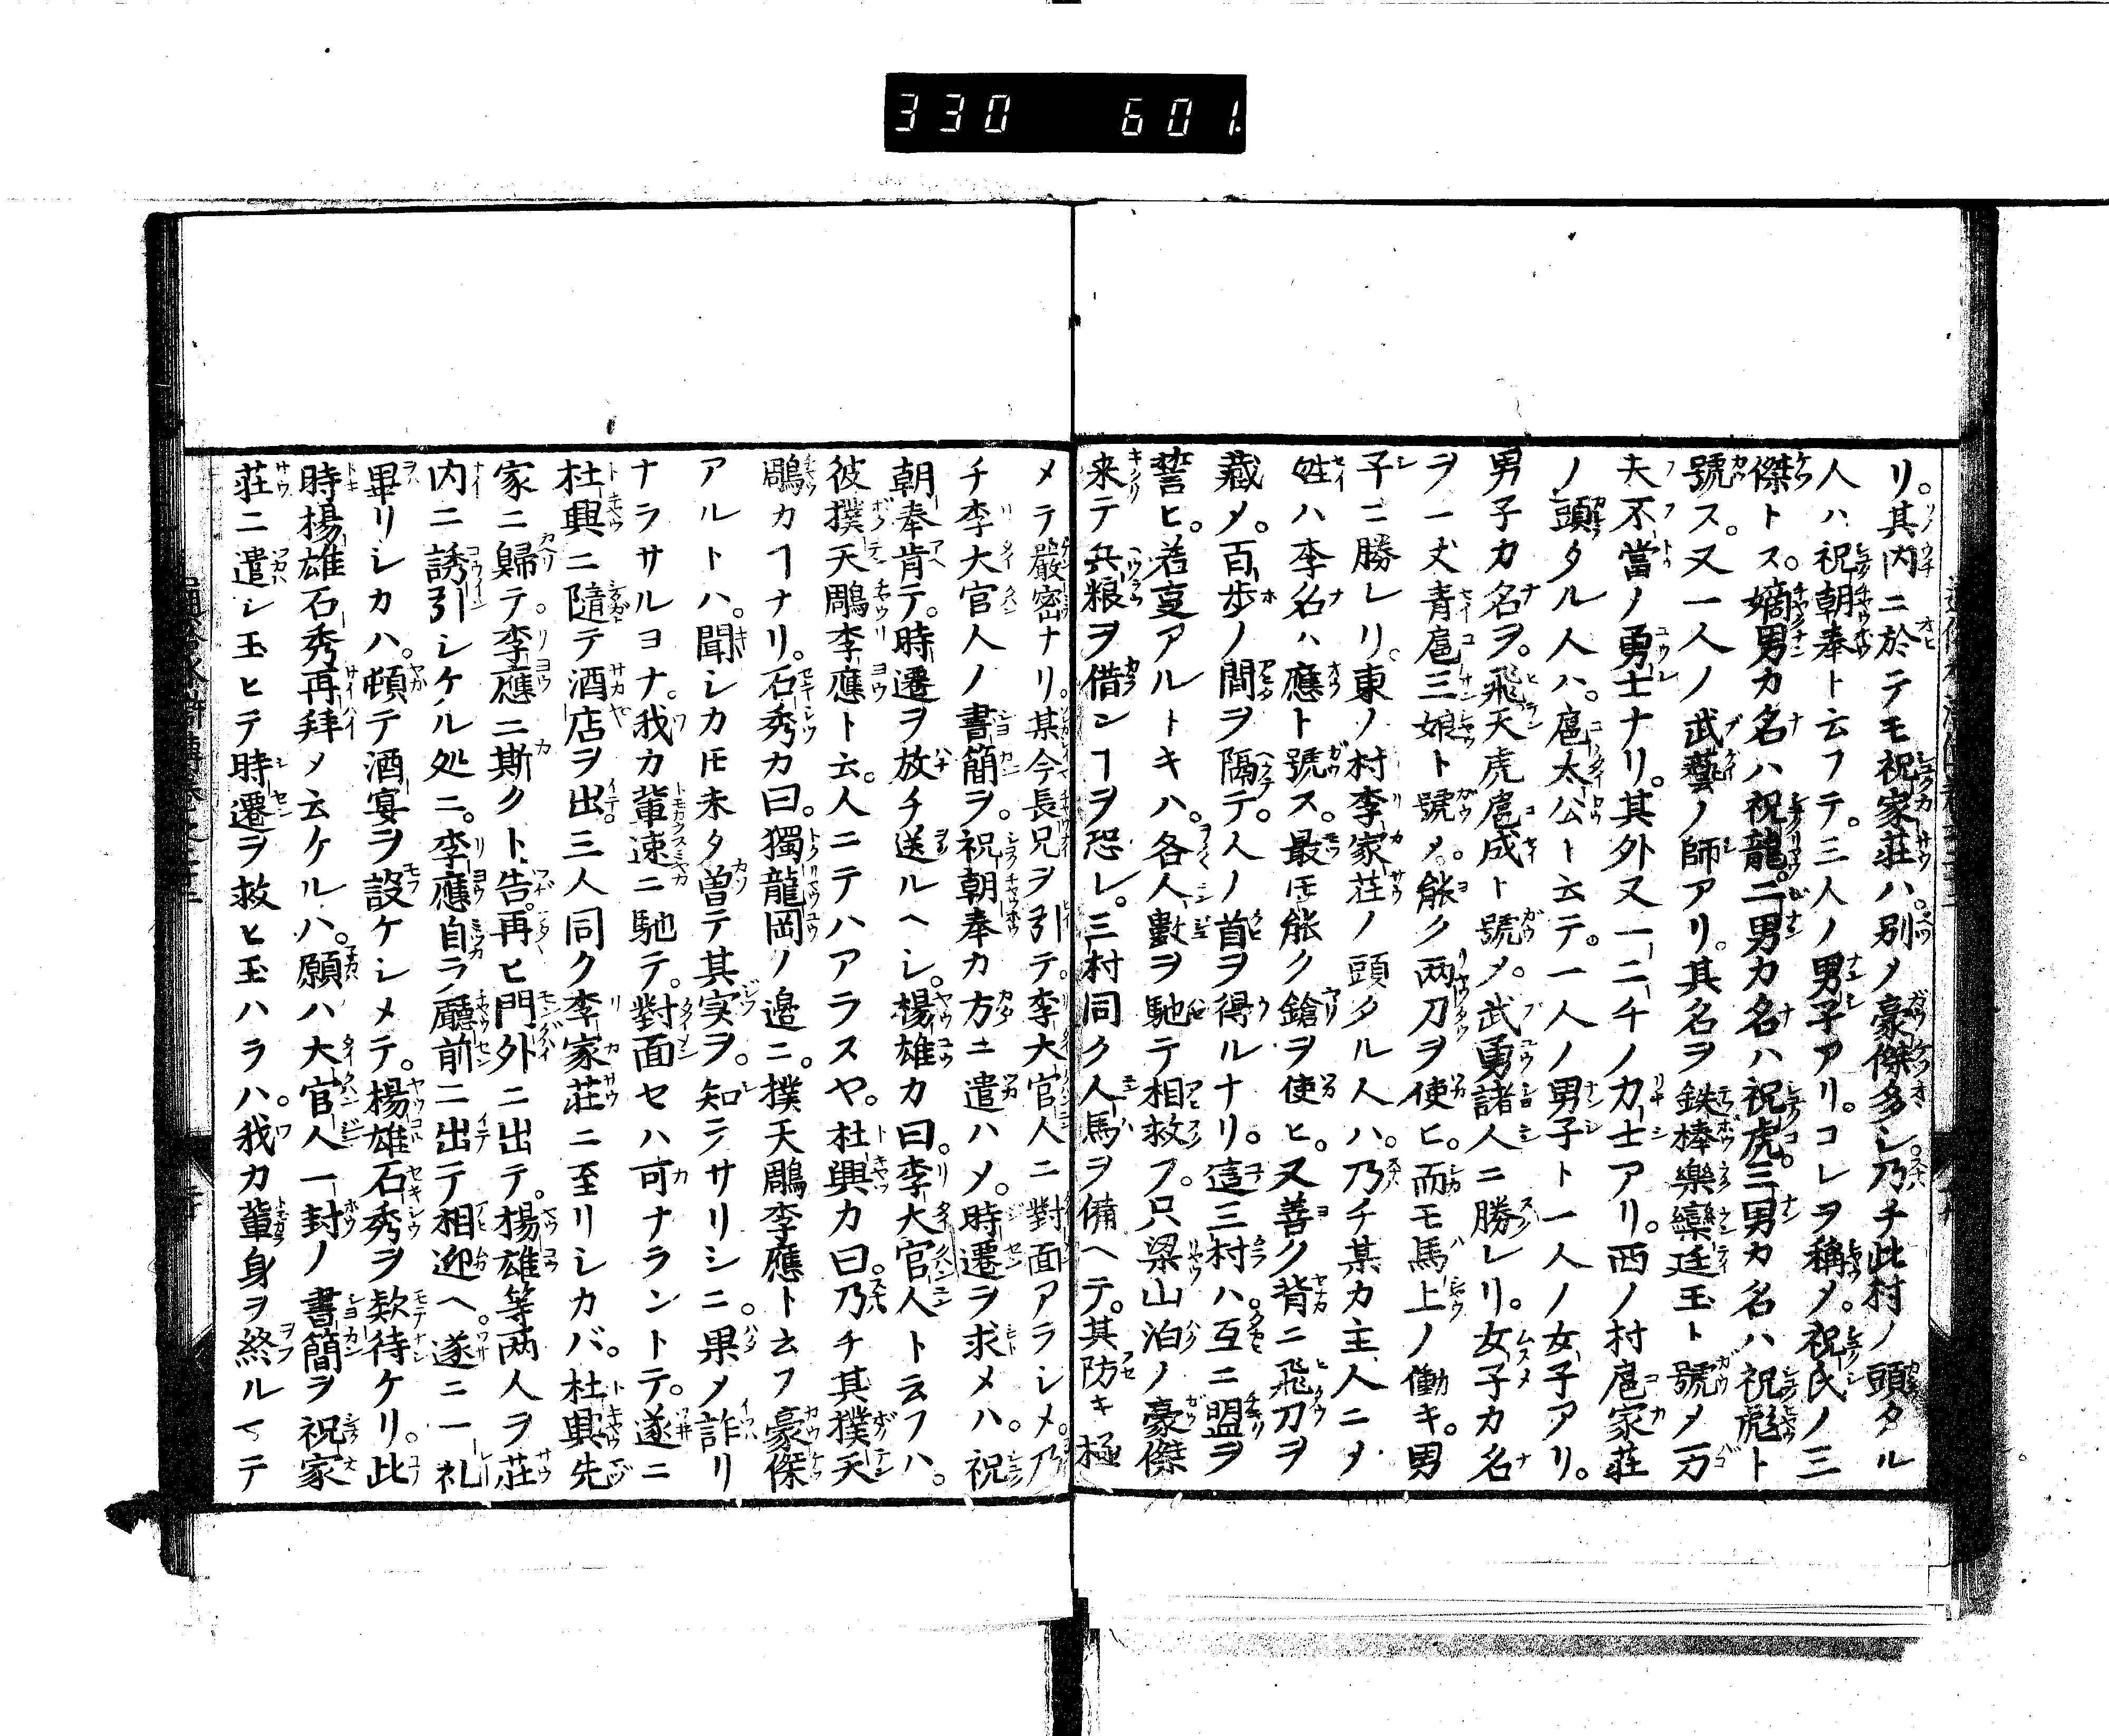 330 601.
リ。其内ニ於テモ祝家莊ハ。別メ豪傑多シ。乃チ此村ノ頭タル
人ハ祝朝奉ト云フテ。三人ノ男子アリ。コレヲ稱メ。祝氏ノ三
傑トス。嫡男カ名ハ祝龍。二男カ名ハ祝虎。三男カ名ハ祝彪ト
號ス。又一人ノ武藝ノ師アリ。其名ヲ鉄棒欒廷玉ト號メ万
夫不當ノ勇士ナリ。其外又一二千ノ力士アリ。西ノ村扈家莊
ノ頭タル人ハ。扈太公ト云テ。一人ノ男子ト一人ノ女子アリ。
男子カ名ヲ。飛天虎扈成ト號メ。武勇諸人ニ勝レリ。女子カ名
ヲ一丈青扈三娘ト號メ。能ク两刀ヲ使ヒ。而モ馬上ノ働キ。男
子ニ勝レリ。東ノ村李家莊ノ頭タル人ハ。乃チ某カ主人ニメ
姓ハ李名ハ應ト號ス。最モ能ク鎗ヲ使ヒ。又善ク背ニ飛刀ヲ
藏メ。百歩ノ間ヲ隔テ。人ノ首ヲ得ルナリ。這三村ハ。互ニ盟ヲ
誓ヒ。若変アルトキハ。各人數ヲ馳テ相救フ。只梁山泊ノ豪傑
来テ兵粮ヲ借ンヿヲ恐レ。三村同ク人馬ヲ備ヘテ。其防キ極
メテ嚴密ナリ。某今長兄ヲ引テ。李大官人ニ對面アラシメ。乃
チ李大官人ノ書簡ヲ。祝朝奉カ方ニ遣ハメ。時遷ヲ求メハ。祝
朝奉肯テ。時遷ヲ放チ送ルヘシ。楊雄カ曰。李大官人ト云フハ。
彼撲天鵰李應ト云。人ニテハアラスヤ。杜興カ曰。乃チ其撲天
鵰カヿナリ。石秀カ曰。獨龍岡ノ邉ニ。撲天鵰李應ト云フ豪傑
アルトハ。聞シカ𪜈未タ曽テ其実ヲ。知ラサリシニ。果メ詐リ
ナラサルヨナ。我カ輩速ニ馳テ。對面セハ可ナラントテ。遂ニ
杜興ニ隨テ酒店ヲ出。三人同ク李家莊ニ至リシカバ。杜興先
家ニ歸テ。李應ニ斯クト告。再ヒ門外ニ出テ。楊雄等两人ヲ莊
内ニ誘引シケル処ニ。李應自ラ廳前ニ出テ相迎ヘ。遂ニ一礼
畢リシカハ。頓テ酒宴ヲ設ケシメテ。楊雄石秀ヲ欵待ケリ。此
時楊雄石秀再拜メ云ケルハ。願ハ大官人一封ノ書簡ヲ祝家
莊ニ遣シ玉ヒテ時遷ヲ救ヒ玉ハラハ。我カ輩身ヲ終ルマテ